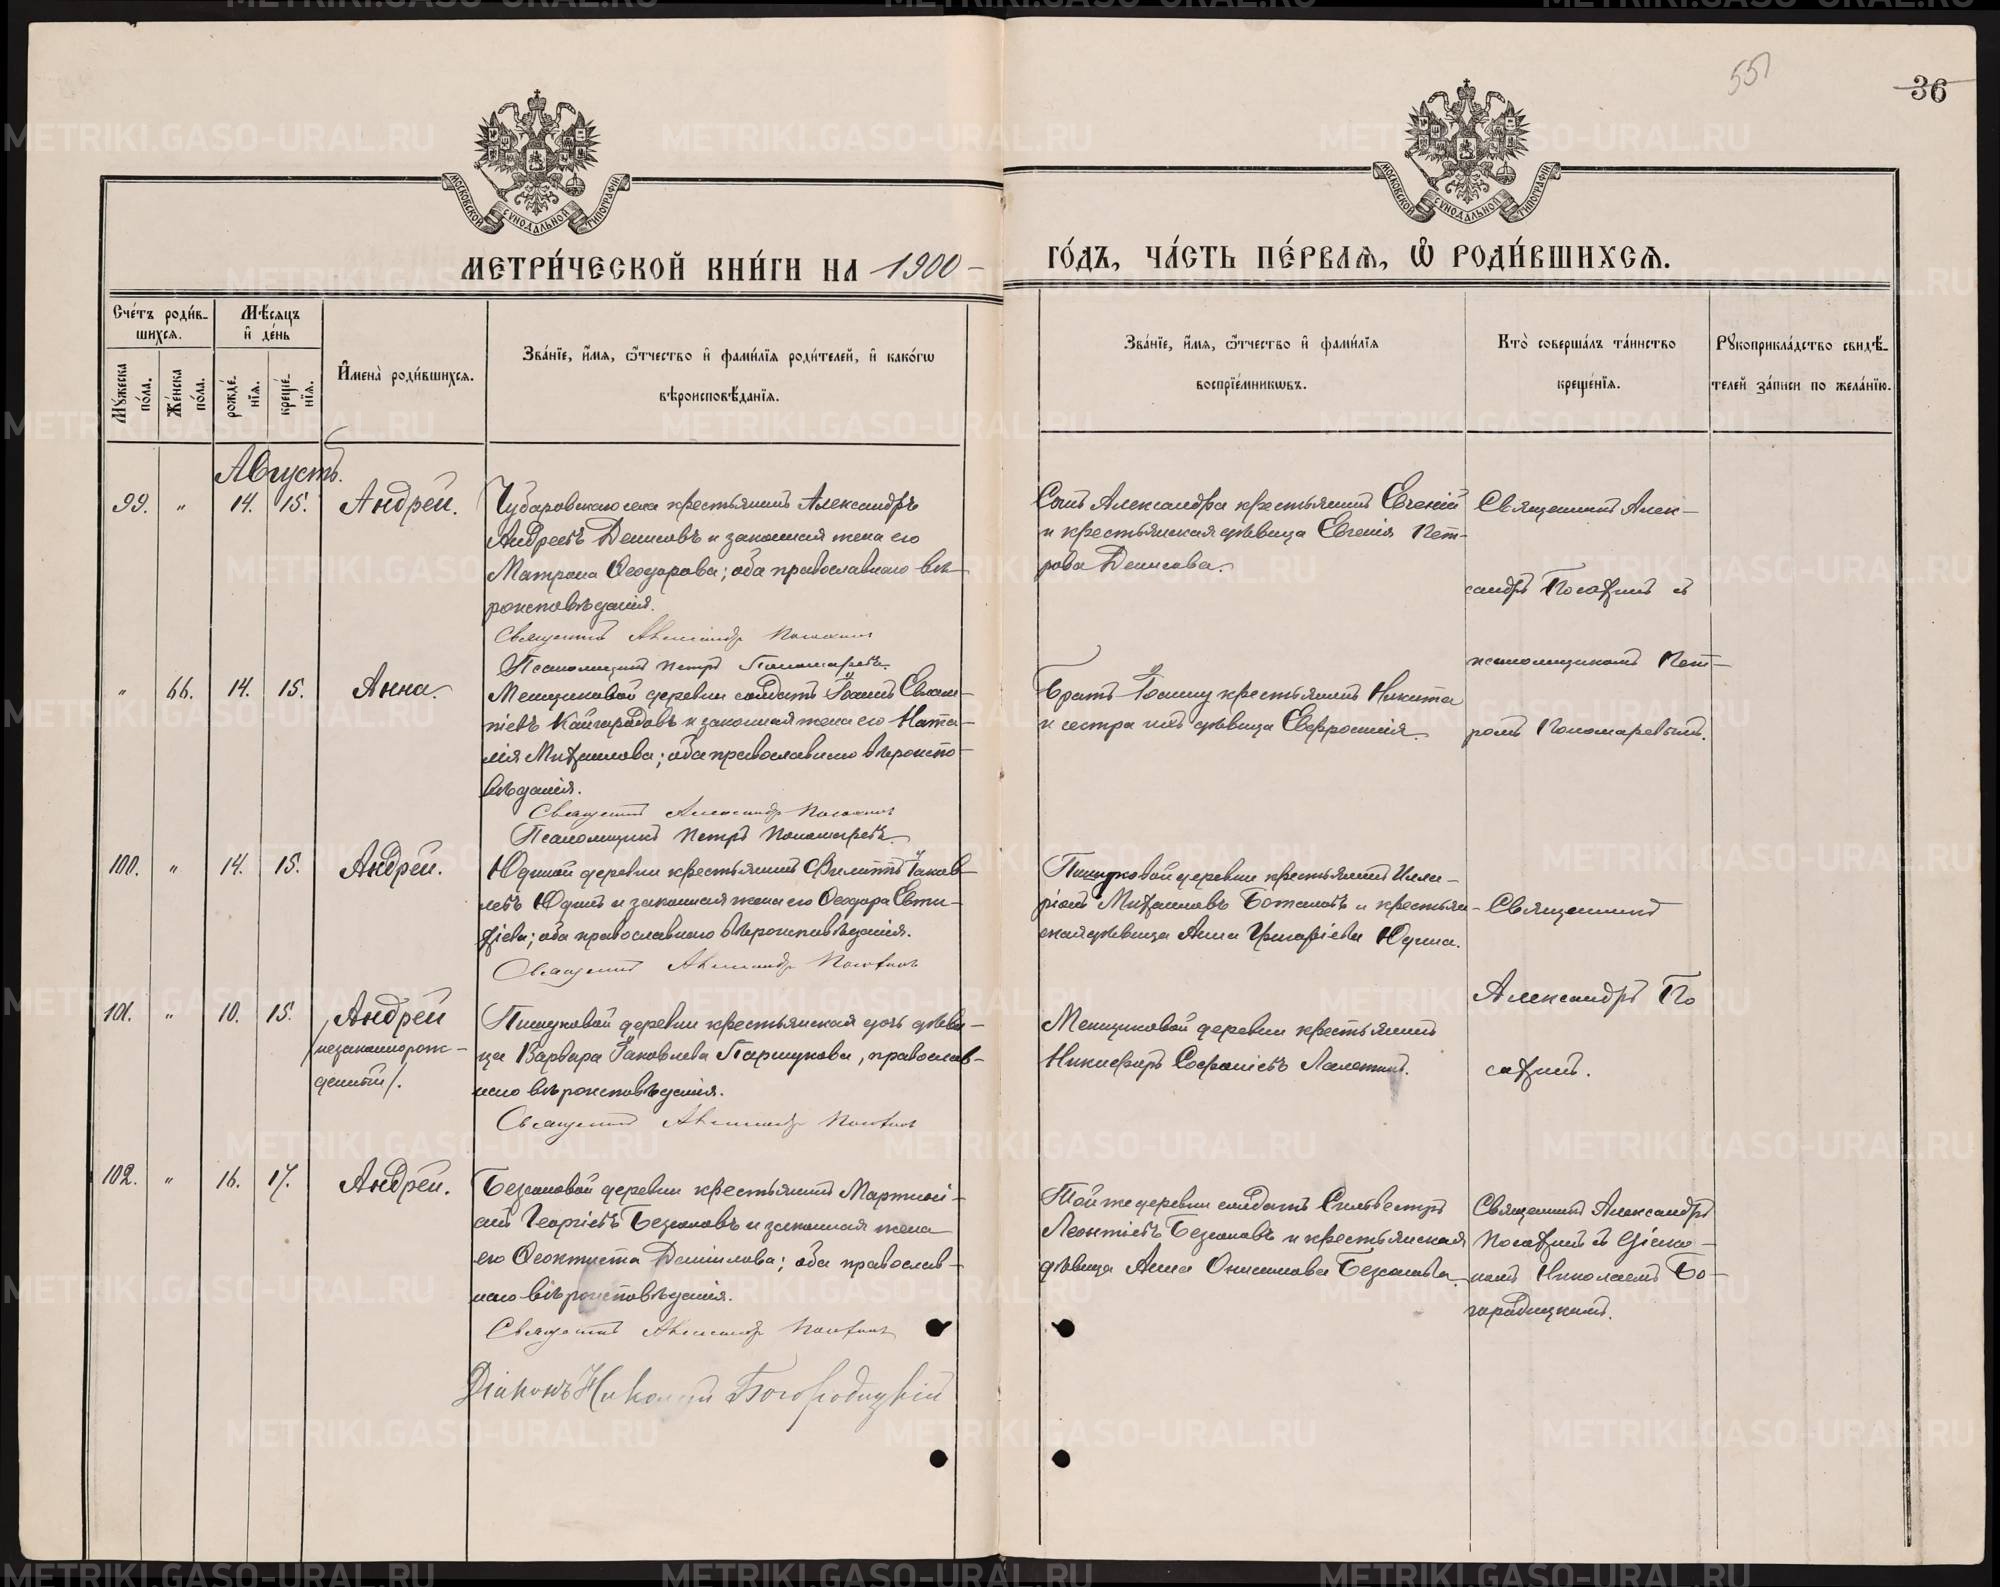 551
36
МОСКОВСКОЙ СѴНОДАЛЬНОЙ ТИПОГРАФІИ
МОСКОВСКОЙ СѴНОДАЛЬНОЙ ТИПОГРАФІИ
МЕТРИ́ЧЕСКОЙ КНИ́ГИ НА 1900
ГО́ДЪ, ЧА́СТЬ ПЕ́РВАЯ, Ѽ РОДИ́ВШИХСЯ.
Сче́тъ роди́в-
шихся.
Мѣсяцъ
и҆ де́нь
Мꙋ́жеска по́ла.
Же́нска по́ла.
рожде́-
нїя.
креще́-
нїя.
И҆мена̀ роди́вшихся.
Зва́нїе, и҆́мя, ѻ҆́тчество и҆ фами́лїя роди́телей, и҆ како́гѡ
вѣроисповѣ́данїя.
Зва́нїе, и҆́мя, ѻ҆́тчество и҆ фами́лїя
воспрїе́мникѡвъ.
Кто̀ соверша́лъ та́инство
креще́нїя.
Рꙋкоприкла́дство свидѣ́-
телей за́писи по жела́нїю.
Августъ.
99. „ 14. 15. Андрей.
Чубаровскаго села крестьянинъ Александръ
Андреевъ Денисовъ и законная жена его
Матрона Ѳеодорова; оба православнаго вѣ-
роисповѣданія.
Священникъ Александръ Посохинъ
Псаломщикъ Петръ Пономаревъ.
Сынъ Александра крестьянинъ Евгеній
и крестьянская дѣвица Евгенія Пет-
рова Денисова.
Священникъ Алек-
сандръ Посохинъ съ
псаломщикомъ Пет-
ромъ Пономаревымъ.
„ 66. 14. 15. Анна.
Менщиковой деревни солдатъ Іоаннъ
Кайгородовъ и законная жена его Ната-
лія Михаилова; оба православнаго вѣроиспо-
вѣданія.
Священникъ Александръ Посохинъ
Псаломщикъ Петръ Пономаревъ.
Братъ Іоанну крестьянинъ Никита
и сестра ихъ дѣвица Евфросинія.
100. „ 14. 15. Андрей.
Юдиной деревни крестьянинъ Филиппъ Іаков-
левъ Юдинъ и законная жена его Ѳеодора Евти-
хіева; оба православнаго вѣроисповѣданія.
Священникъ Александръ Посохинъ
деревни крестьянинъ Илла-
ріонъ Михаиловъ и крестьян-
ская дѣвица Анна Юдина.
Священникъ
Александръ По
сохинъ.
101. „ 10. 15. Андрей
/незаконнорож-
денный/.
деревни крестьянская дочь дѣви-
ца Варвара Іаковлева Паршукова, православ-
наго вѣроисповѣданія.
Священникъ Александръ Посохинъ
Менщиковой деревни крестьянинъ
Никифоръ
102. „ 16. 17. Андрей.
Безсоновой деревни крестьянинъ Мартині-
анъ Георгіевъ Безсоновъ и законная жена
его Ѳеоктиста Даніилова; оба православ-
наго вѣроисповѣданія.
Священникъ Александръ Посохинъ
Діаконъ Николай Богородицкій
Той же деревни солдатъ Сильвестръ
Леонтіевъ Безсоновъ и крестьянская
дѣвица Анна Онисимова Безсонова.
Священникъ Александръ
Посохинъ съ діако-
номъ Николаемъ Бо-
городицкимъ.
METRIKI.GASO-URAL.RU